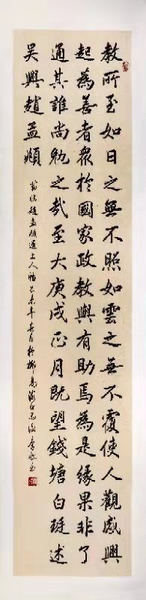 教所至如日之無不照如雲之無不覆使人觀感興
起為善者衆於國家政教與有助焉為是緣果非了
通其誰尚勉之哉至大庚戌正月既望錢塘白珽述
吳興趙孟頫